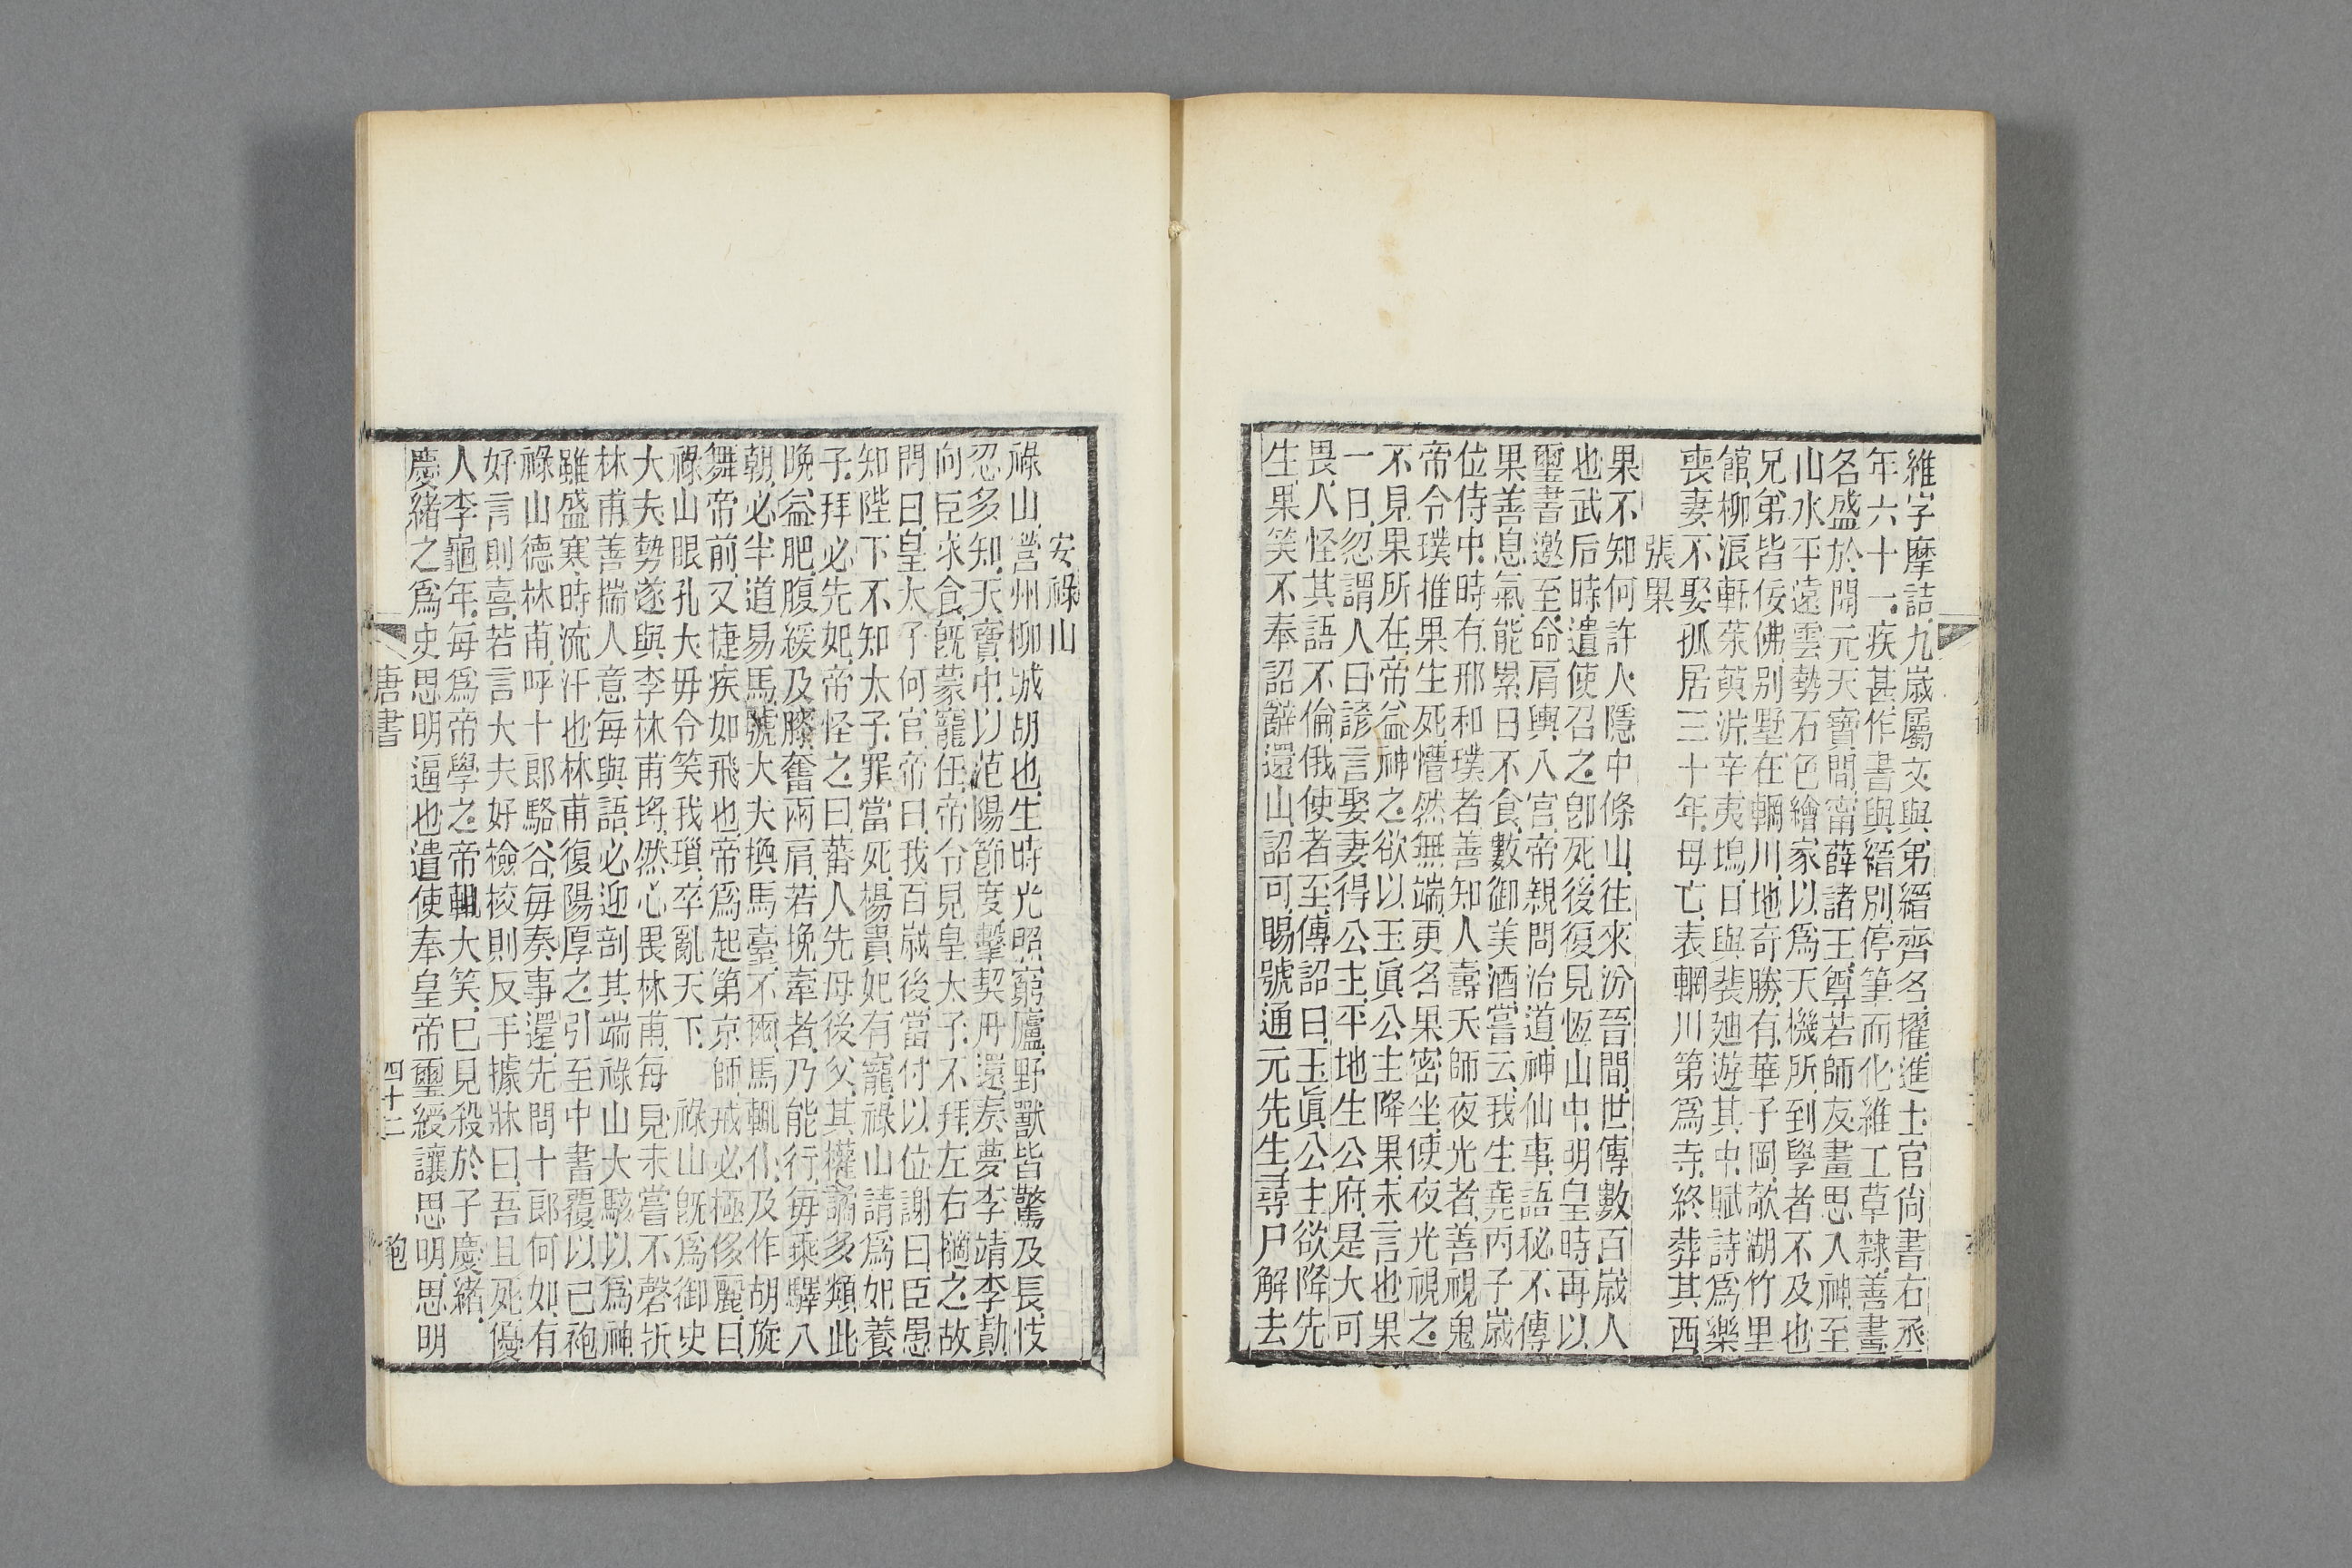 維字摩詰九歲屬文與弟縉齊名擢進士官尙書右丞
年六十一疾甚作書與縉別停筆而化維工草隸善畫
名盛於開元天寶間甯薛諸王尊若師友畫思入神至
山水平遠雲勢石色繪家以爲天機所到學者不及也
兄弟皆佞佛別墅在輞川地奇勝有華子岡欹湖竹里
館柳浪軒茱萸沜辛夷塢日與裴廸遊其中賦詩爲樂
喪妻不娶孤居三十年母亡表輞川第爲寺終葬其西
張果
果不知何許人隱中條山往來汾晉間世傳數百歲人
也武后時遣使召之卽死後復見恆山中明皇時再以
璽書邀至命肩輿入宮帝親問治道神仙事語秘不傳
果善息氣能累日不食數御美酒嘗云我生堯丙子歲
位侍中時有邢和璞者善知人壽夭師夜光者善視鬼
帝令璞推果生死懵然無端更名果密坐使夜光視之
不見果所在帝益神之欲以玉眞公主降果未言也果
一日忽謂人曰諺言娶妻得公主平地生公府是大可
畏人怪其語不倫俄使者至傳詔曰玉眞公主欲降先
生果笑不奉詔辭還山詔可賜號通元先生尋尸解去
安祿山
祿山營州柳城胡也生時光照窮廬野獸皆驚及長忮
忍多知天寶中以范陽節度擊契丹還奏夢李靖李勣
向臣求食旣蒙寵任帝令見皇太子不拜左右擿之故
問曰皇太子何官帝曰我百歲後當付以位謝曰臣愚
知陛下不知太子罪當死楊貴妃有寵祿山請爲妃養
子拜必先妃帝怪之曰蕃人先母後父其權譎多類此
晚益肥腹緩及膝奮兩肩若挽牽者乃能行每乘驛入
朝必半道易馬號大夫換馬臺不爾馬輒仆及作胡旋
舞帝前又捷疾如飛也帝爲起第京師戒必極侈麗曰
祿山眼孔大毋令笑我瑣卒亂天下 祿山旣爲御史
大夫勢遂與李林甫埓然心畏林甫每見未嘗不磬折
林甫善揣人意每與語必迎剖其端祿山大駭以爲神
雖盛寒時流汗也林甫復陽厚之引至中書覆以已袍
祿山德林甫呼十郎駱谷每奏事還先問十郎何如有
好言則喜若言大夫好檢校則反手據牀曰吾且死優
人李龜年每爲帝學之帝輒大笑已見殺於子慶緒
慶緒之爲史思明逼也遣使奉皇帝璽綬讓思明思明
唐書 四十二 匏